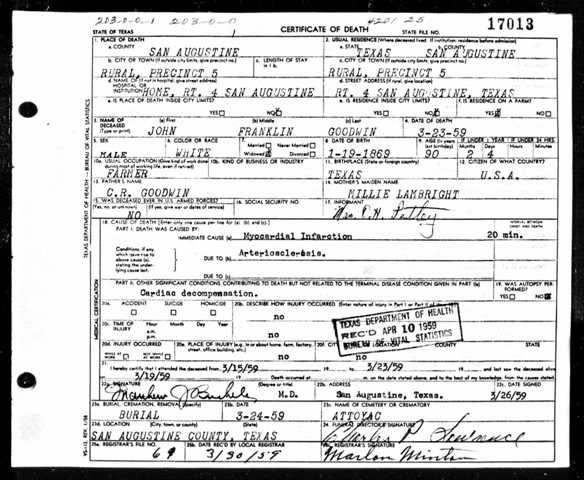 203-0-0-1 203-0-0 4201 25
STATE OF TEXAS CERTIFICATE OF DEATH STATE FILE NO. 17013
1. PLACE OF DEATH 2. USUAL RESIDENCE (Where deceased lived. If institution: residence before admission)
a. COUNTY SAN AUGUSTINE a. STATE TEXAS b. COUNTY SAN AUGUSTINE
b. CITY OR TOWN (If outside city limits, give precinct no.) c. LENGTH OF STAY c. CITY OR TOWN (If outside city limits, give precinct no.)
RURAL, PRECINCT 5 in 1 b. RURAL, PRECINCT 5
d. NAME OF (If not in hospital, give street address) d. STREET ADDRESS (If rural, give location)
HOSPITAL OR
INSTITUTION HOME, RT. 4 SAN AUGUSTINE RT. 4 SAN AUGUSTINE, TEXAS
e. IS PLACE OF DEATH INSIDE CITY LIMITS? e. IS RESIDENCE INSIDE CITY LIMITS? f. IS RESIDENCE ON A FARM?
YES NO YES NO YES NO
3. NAME OF DECEASED (a) First (b) Middle (c) Last 4. DATE OF DEATH
(Type or print) JOHN FRANKLIN GOODWIN 3-23-59
5. SEX 6. COLOR OR RACE 7. Married Never Married 8. DATE OF BIRTH 9. AGE (In years last birthday) IF UNDER 1 YEAR IF UNDER 24 HRS.
MALE WHITE Widowed Divorced 1-19-1869 90 Months 2 Days 4 Hours Min.
10a. USUAL OCCUPATION (Give kind of work done during most of working life, even if retired) 10b. KIND OF BUSINESS OR INDUSTRY 11. BIRTHPLACE (State or foreign country) 12. CITIZEN OF WHAT COUNTRY?
FARMER TEXAS U.S.A.
13. FATHER'S NAME 14. MOTHER'S MAIDEN NAME
C.R. GOODWIN MILLIE LAMBRIGHT
15. WAS DECEASED EVER IN U.S. ARMED FORCES? 16. SOCIAL SECURITY NO. 17. INFORMANT
(Yes, no, or unknown) (If yes, give war or dates of service)
NO Mrs. P.H.
18. CAUSE OF DEATH (Enter only one cause per line for (a), (b), and (c).) INTERVAL BETWEEN ONSET AND DEATH
PART I. DEATH WAS CAUSED BY:
IMMEDIATE CAUSE (a) Myocardial Infarction 20 min.
Conditions, if any, which gave rise to above cause (a), stating the underlying cause last.
DUE TO (b) Arteriosclerosis.
DUE TO (c)
PART II. OTHER SIGNIFICANT CONDITIONS CONTRIBUTING TO DEATH BUT NOT RELATED TO THE TERMINAL DISEASE CONDITION GIVEN IN PART I(a) 19. WAS AUTOPSY PERFORMED?
Cardiac decompensation. YES NO
20a. ACCIDENT SUICIDE HOMICIDE 20b. DESCRIBE HOW INJURY OCCURRED (Enter nature of injury in Part I or Part II of item 18.)
no
20c. TIME OF INJURY Hour Month Day Year
a.m.
p.m. no
TEXAS DEPARTMENT OF HEALTH
REC'D APR 10 1959
BUREAU OF VITAL STATISTICS
20d. INJURY OCCURRED 20e. PLACE OF INJURY (e.g. in or about home, farm, factory, street, office building, etc.) 20f. CITY, TOWN, OR LOCATION COUNTY STATE
WHILE AT WORK NOT WHILE AT WORK no no
21. I hereby certify that I attended the deceased from 3/15/59 19 to 3/23/59 19
3/19/59 19 Death occurred at m. on the date stated above, and to the best of my knowledge, from the causes stated.
22a. SIGNATURE (Degree or title) 22b. ADDRESS 22c. DATE SIGNED
M.D. San Augustine, Texas. 3/26/59
23a. BURIAL, CREMATION, REMOVAL (Specify) 23b. DATE 23c. NAME OF CEMETERY OR CREMATORY
BURIAL 3-24-59 ATTOYAC
23d. LOCATION (City, town, or county) (State) 24. FUNERAL DIRECTOR'S SIGNATURE
SAN AUGUSTINE COUNTY, TEXAS Charles P. Lawrence
25a. REGISTRAR'S FILE NO. 25b. DATE REC'D BY LOCAL REGISTRAR 25c. REGISTRAR'S SIGNATURE
69 3/30/59 Marlon Minton
TEXAS DEPARTMENT OF HEALTH — BUREAU OF VITAL STATISTICS
MEDICAL CERTIFICATION